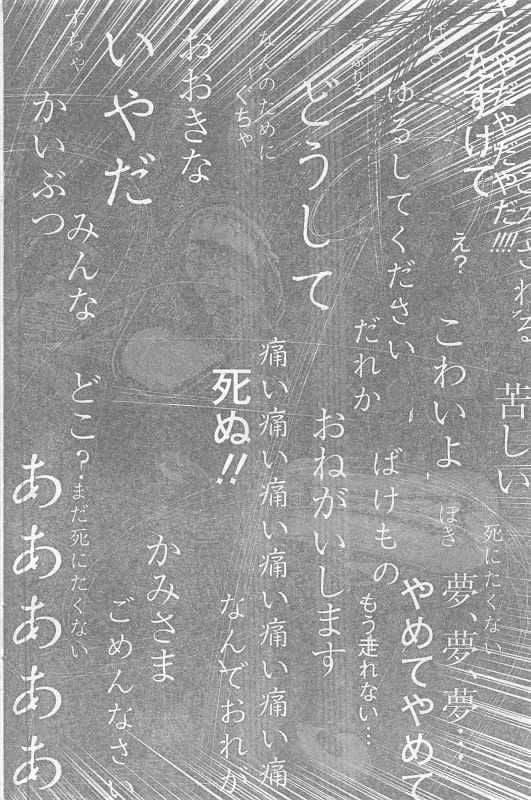 やだやだやだやだ!!!!
される
苦しい
たすけて
死にたくない
え?
こわいよ
ぼき
夢、夢、夢…
ゆるしてください
ばけもの
やめてやめて
だれか
もう走れない…
どうして
おねがいします
なんのために
ぐちゃ
痛い痛い痛い痛い痛い痛い痛
死ぬ!!
なんでおれが
おおきな
かみさま
いやだ
ごめんなさい
みんな
どこ?
まだ死にたくない
かいぶつ
ああああああ